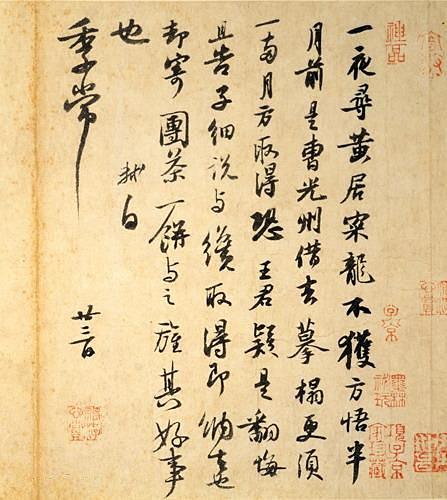 一夜尋黃居寀龍不獲方悟半
月前是曹光州借去摹榻更須
一兩月方取得恐王君疑是翻悔
且告子細說與纔取得即納去也
却寄團茶一餅與之旌其好事
也
軾白
季常
廿三日
神品